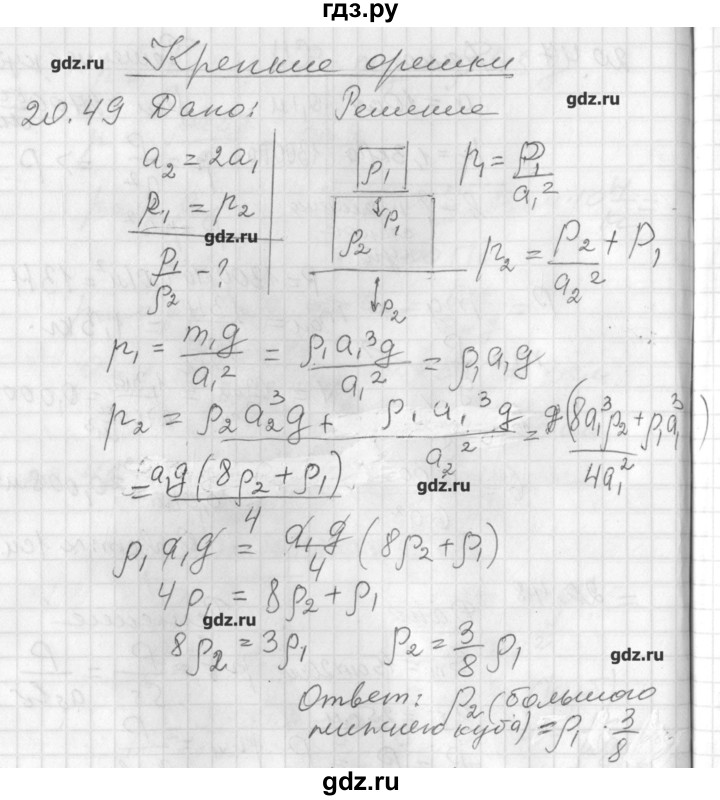 гдз.ру
Крепкие орешки
gdz.ru
gdz.ru
20.49 Дано: Решение
a₂ = 2a₁
p₁ = p₂
gdz.ru
ρ₁/ρ₂ - ?
ρ₁
p₁
ρ₂
p₂
p₁ = P₁/a₁²
p₂ = P₂/a₂² + P₁
p₁ = m₁g/a₁² = ρ₁a₁³g/a₁² = ρ₁a₁g
p₂ = (ρ₂a₂³g + ρ₁a₁³g)/a₂² = g(8a₁³ρ₂ + ρ₁a₁³)/4a₁²
= a₁g(8ρ₂ + ρ₁)/4
gdz.ru
ρ₁a₁g = a₁g/4 (8ρ₂ + ρ₁)
4ρ₁ = 8ρ₂ + ρ₁
gdz.ru
8ρ₂ = 3ρ₁ ρ₂ = 3/8 ρ₁
gdz.ru
Ответ: ρ₂ (большого
нижнего куба) = ρ₁ · 3/8
gdz.ru